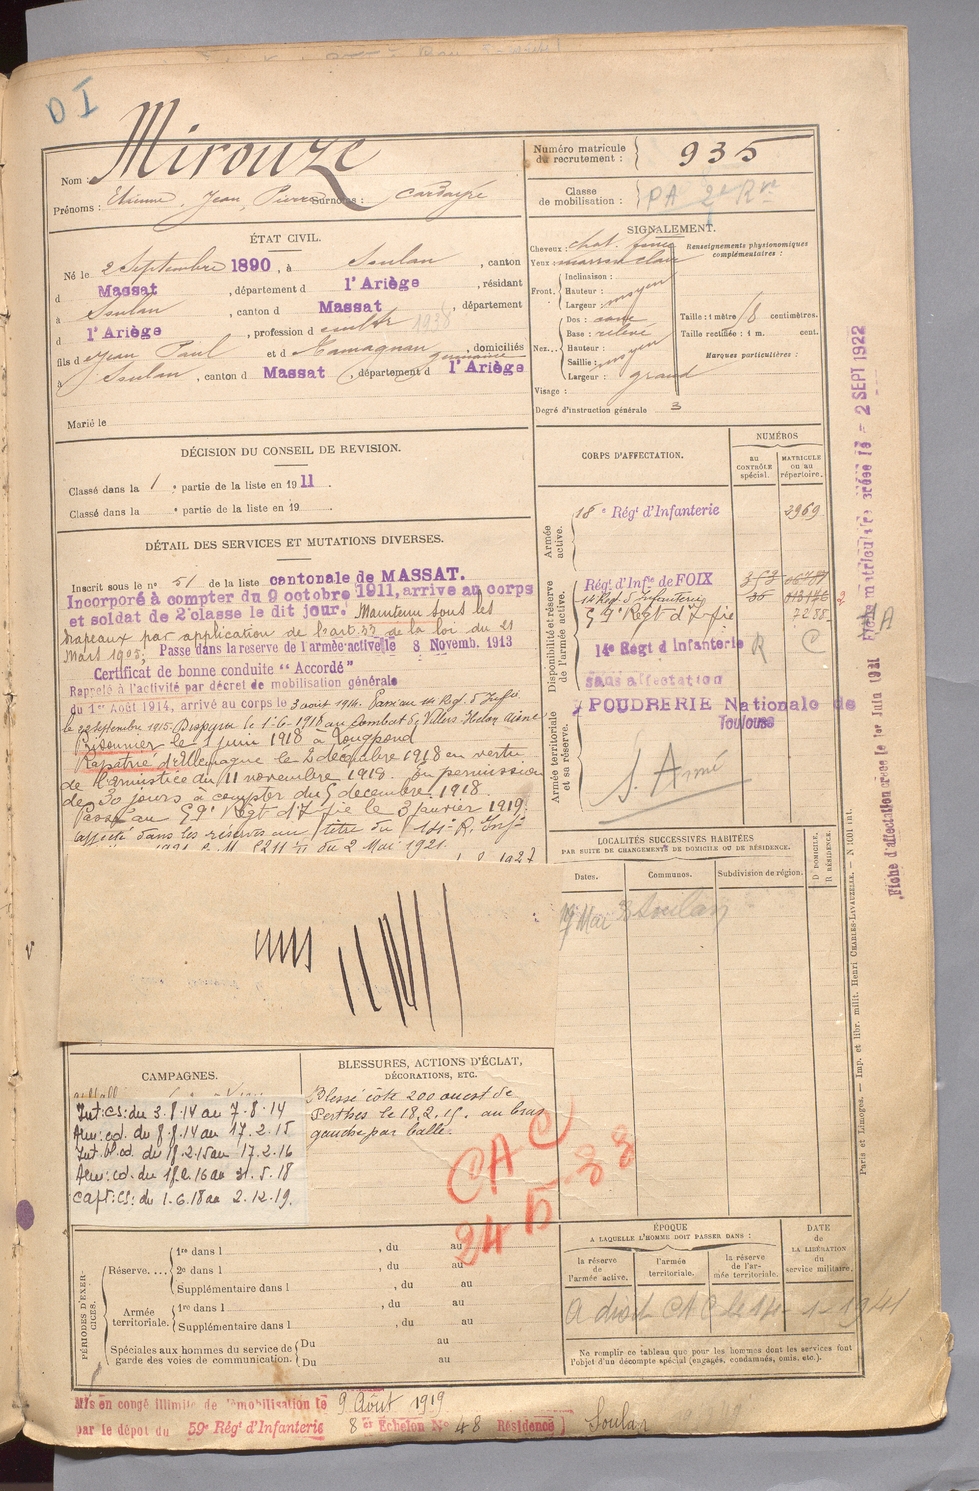 D I
Nom : Mirouze
Prénoms : Etienne, Jean, Pierre Surnoms : Cardayre
Numéro matricule
du recrutement : 935
Classe
de mobilisation : PA 2e Rve
ÉTAT CIVIL.
Né le 2 Septembre 1890, à Soulan, canton
d Massat, département d l'Ariège, résidant
à Soulan, canton d Massat, département
d l'Ariège, profession d cultr 1938
fils d Jean Paul et d Ramagnan germaine, domiciliés
à Soulan, canton d Massat, département d l'Ariège
Marié le
SIGNALEMENT.
Cheveux : chat. foncé
Yeux : marron clair
Front. Inclinaison :
Hauteur : moyen
Largeur :
Nez... Dos : cave
Base : relevé
Hauteur :
Saillie : moyen
Largeur : grand
Visage :
Degré d'instruction générale 3
Renseignements physionomiques
complémentaires :
Taille : 1 mètre centimètres.
Taille rectifiée : 1 m. cent.
Marques particulières :
DÉCISION DU CONSEIL DE REVISION.
Classé dans la 1e partie de la liste en 1911.
Classé dans la e partie de la liste en 19
DÉTAIL DES SERVICES ET MUTATIONS DIVERSES.
Inscrit sous le n° 51 de la liste cantonale de MASSAT.
Incorporé à compter du 9 octobre 1911, arrive au corps
et soldat de 2e classe le dit jour. Maintenu sous les
drapeaux par application de l'art. 33 de la loi du 21
Mars 1905; Passe dans la reserve de l'armée active le 8 Novemb. 1913
Certificat de bonne conduite "Accordé"
Rappelé à l'activité par décret de mobilisation générale
du 1er Août 1914, arrivé au corps le 3 août 1914. Passé au 14 Rég. d'Inftie
le 22 septembre 1915. Disparu le 1-6-1918 au Combat de Villers Helon Aisne
Prisonnier le 1 juin 1918 à Longpond
Rapatrié d'Allemagne le 2 décembre 1918 en vertu
de l'armistice du 11 novembre 1918. En permission
de 30 jours à compter du 5 decembre 1918.
Passé au 59e Regt d'Ifie le 3 janvier 1919.
affecté dans les réserves au titre du 14e R. Infie
du 2 Mai 1921.
1927
CORPS D'AFFECTATION.
NUMÉROS
au contrôle spécial.
matricule ou au répertoire.
Armée active.
18e Régt d'Infanterie 2969
Disponibilité et réserve de l'armée active.
Régt d'Infie de FOIX
14 Rég. d'Infanterie
59e Regt d'Ifie 7258
14e Regt d Infanterie R C
sans affectation
Armée territoriale et sa réserve.
POUDRERIE Nationale de
Toulouse
S. Armé
Fiche d'affectation créée le 1er Juin 1931
2 SEPT 1922
A
LOCALITÉS SUCCESSIVES HABITÉES
PAR SUITE DE CHANGEMENTS DE DOMICILE OU DE RÉSIDENCE.
Dates.
Communes.
Subdivision de région.
D DOMICILE.
R RÉSIDENCE.
Mai Soulan
CAMPAGNES.
Int: CS: du 3.8.14 au 7-8-14
Alm: cd. du 8.8.14 au 17.2.15
Int. bl. cd. du 18.2.15 au 17.2.16
Alm: cd. du 18.2.16 au 31.5.18
Capt: CS: du 1.6.18 au 2.12.19.
BLESSURES, ACTIONS D'ÉCLAT,
DÉCORATIONS, ETC.
Blessé côte 200 ouest de
Perthes le 18.2.15. au bras
gauche par balle.
CAC
24 5 38
PÉRIODES D'EXERCICES.
Réserve....
1re dans l , du au
2e dans l , du au
Supplémentaire dans l , du au
Armée territoriale.
1re dans l , du au
Supplémentaire dans l , du au
Spéciales aux hommes du service de garde des voies de communication.
Du au
Du au
ÉPOQUE
A LAQUELLE L'HOMME DOIT PASSER DANS :
la réserve de l'armée active.
l'armée territoriale.
la réserve de l'armée territoriale.
DATE
de
LA LIBÉRATION
du
service militaire.
A droit CAC le 14-1-1941
Ne remplir ce tableau que pour les hommes dont les services font
l'objet d'un décompte spécial (engagés, condamnés, omis, etc.).
Mis en congé illimité de démobilisation le 9 Août 1919
par le dépot du 59e Rég d'Infanterie 8er Echelon No 48 Résidence Soulan
Paris et Limoges. — Imp. et libr. milit. Henri CHARLES-LAVAUZELLE. — N 1001 int.